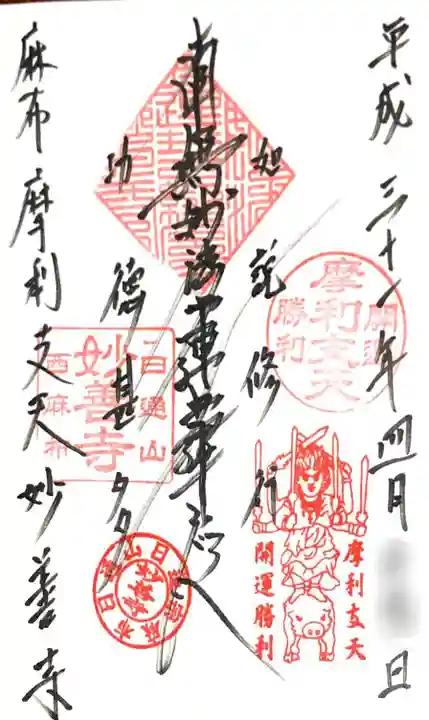 平成三十一年四月 日
如説修行
南無妙法蓮華経
功徳甚多
麻布摩利支天妙善寺
開運
摩利支天
勝利
日通山
妙善寺
西麻布
摩利支天
開運勝利